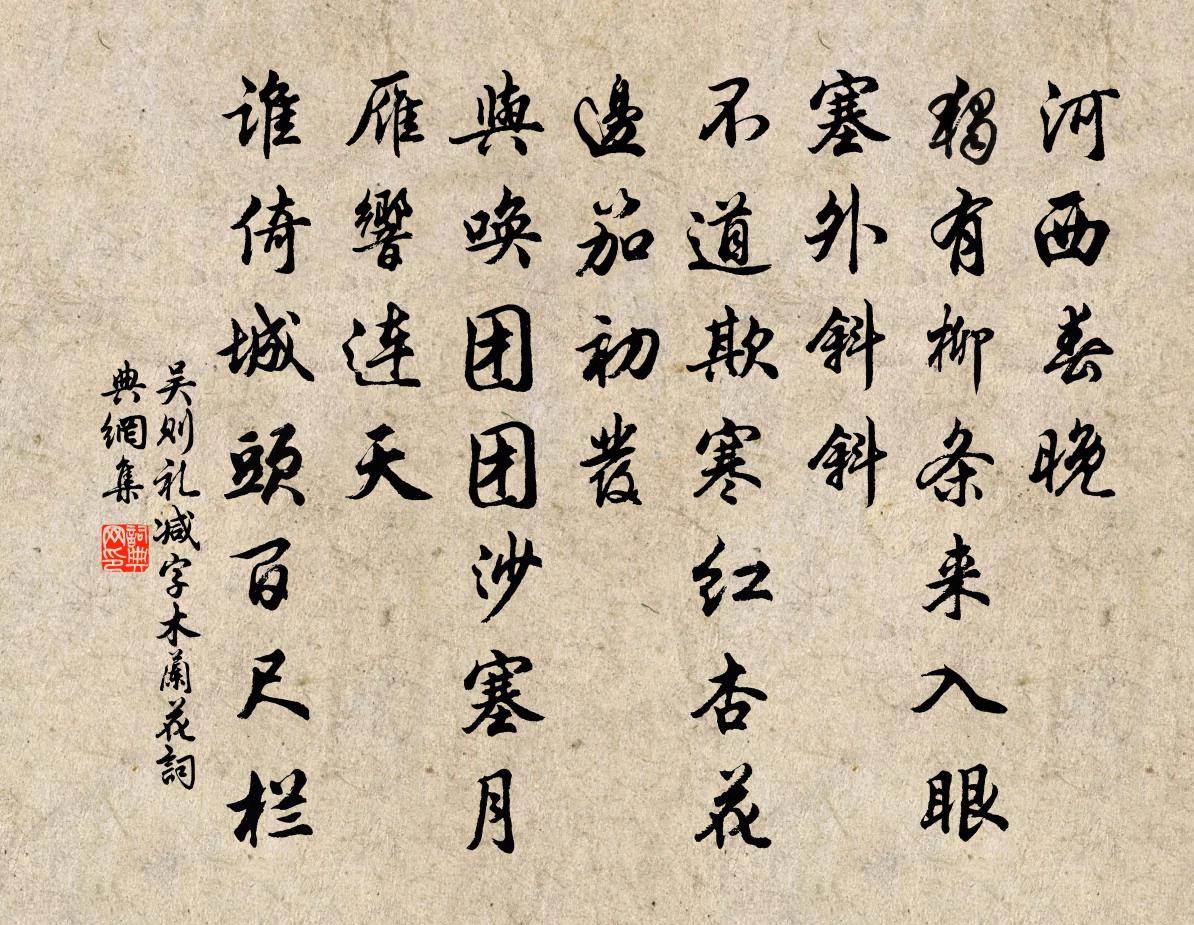 河西春晚
独有柳条来入眼
塞外斜斜
不道欺寒红杏花
邊笳初發
與唤团团沙塞月
雁響連天
谁倚城頭百尺栏
吴则礼减字木蘭花詞
典網集
詞典
网印